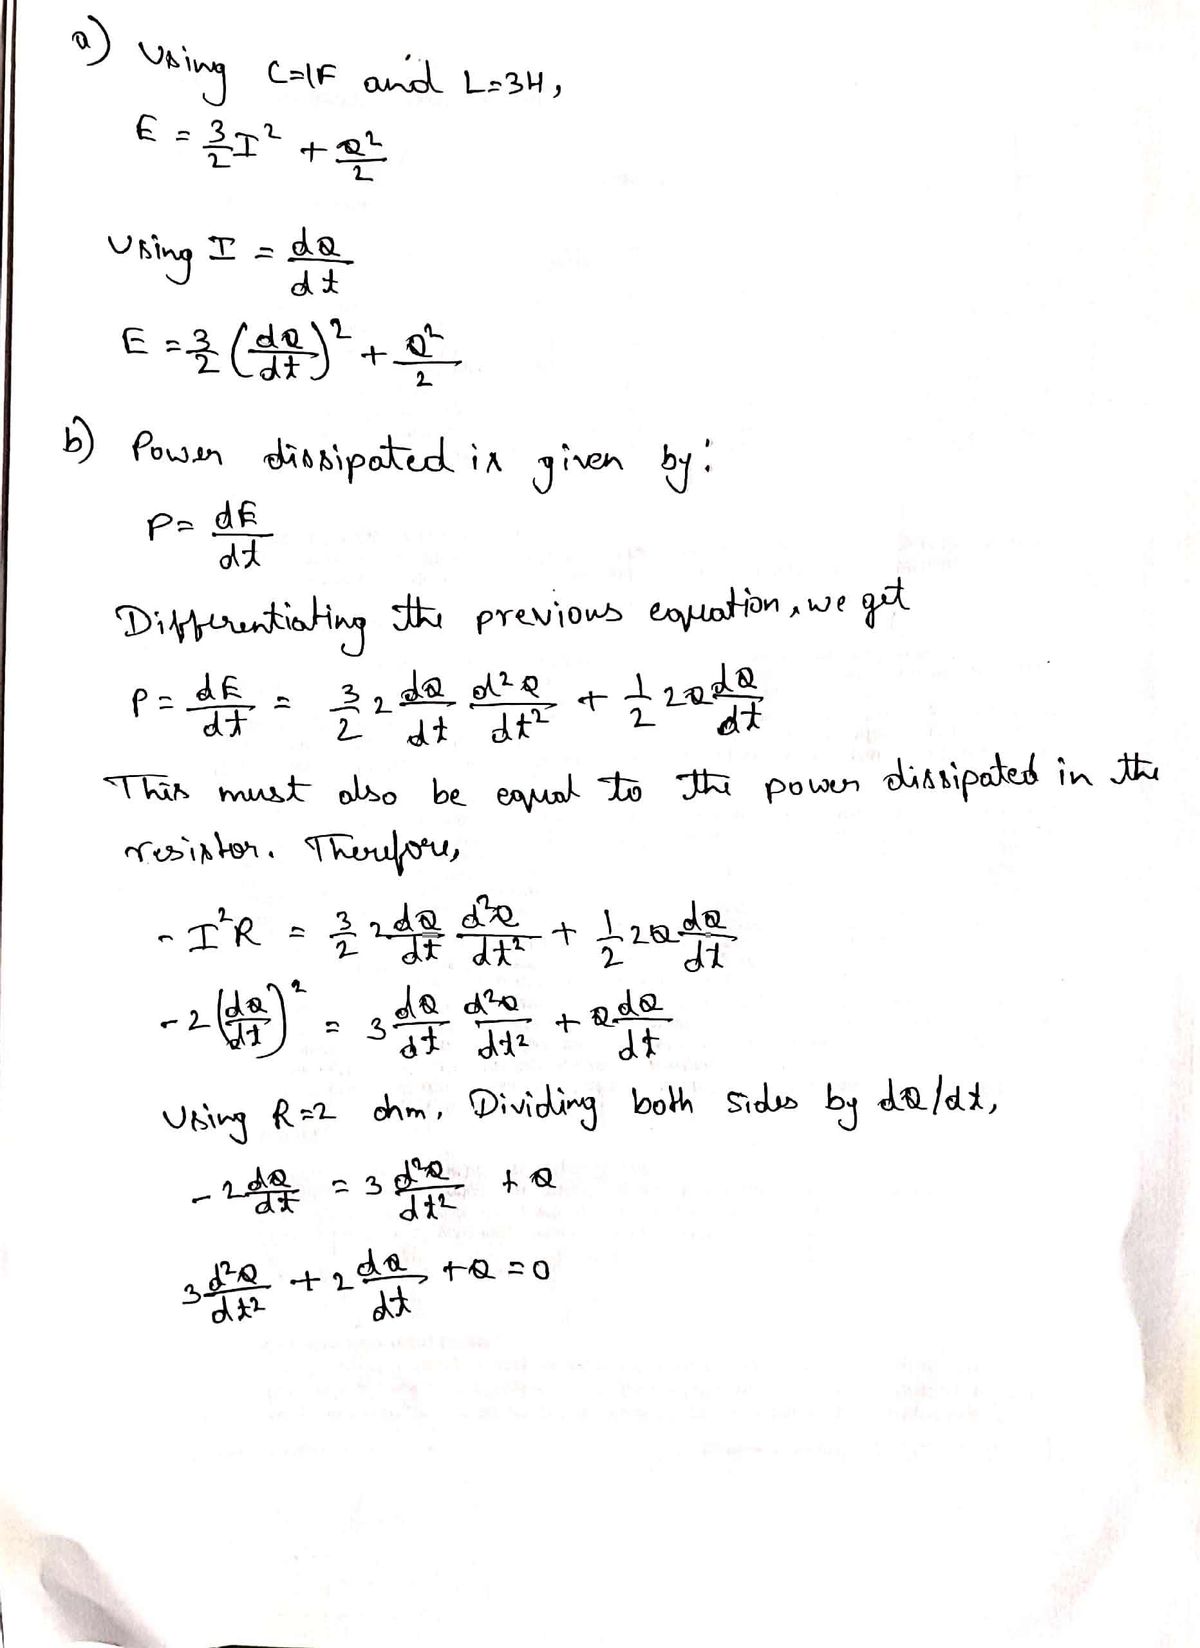 a) Using C=1F and L=3H,
E = 3/2 I² + Q²/2
Using I = dQ/dt
E = 3/2 (dQ/dt)² + Q²/2
b) Power dissipated is given by:
P = dE/dt
Differentiating the previous equation, we get
P = dE/dt = 3/2 2 dQ/dt d²Q/dt² + 1/2 2Q dQ/dt
This must also be equal to the power dissipated in the
resistor. Therefore,
- I²R = 3/2 2 dQ/dt d²Q/dt² + 1/2 2Q dQ/dt
- 2 (dQ/dt)² = 3 dQ/dt d²Q/dt² + Q dQ/dt
Using R=2 ohm. Dividing both sides by dQ/dt,
- 2 dQ/dt = 3 d²Q/dt² + Q
3 d²Q/dt² + 2 dQ/dt + Q = 0